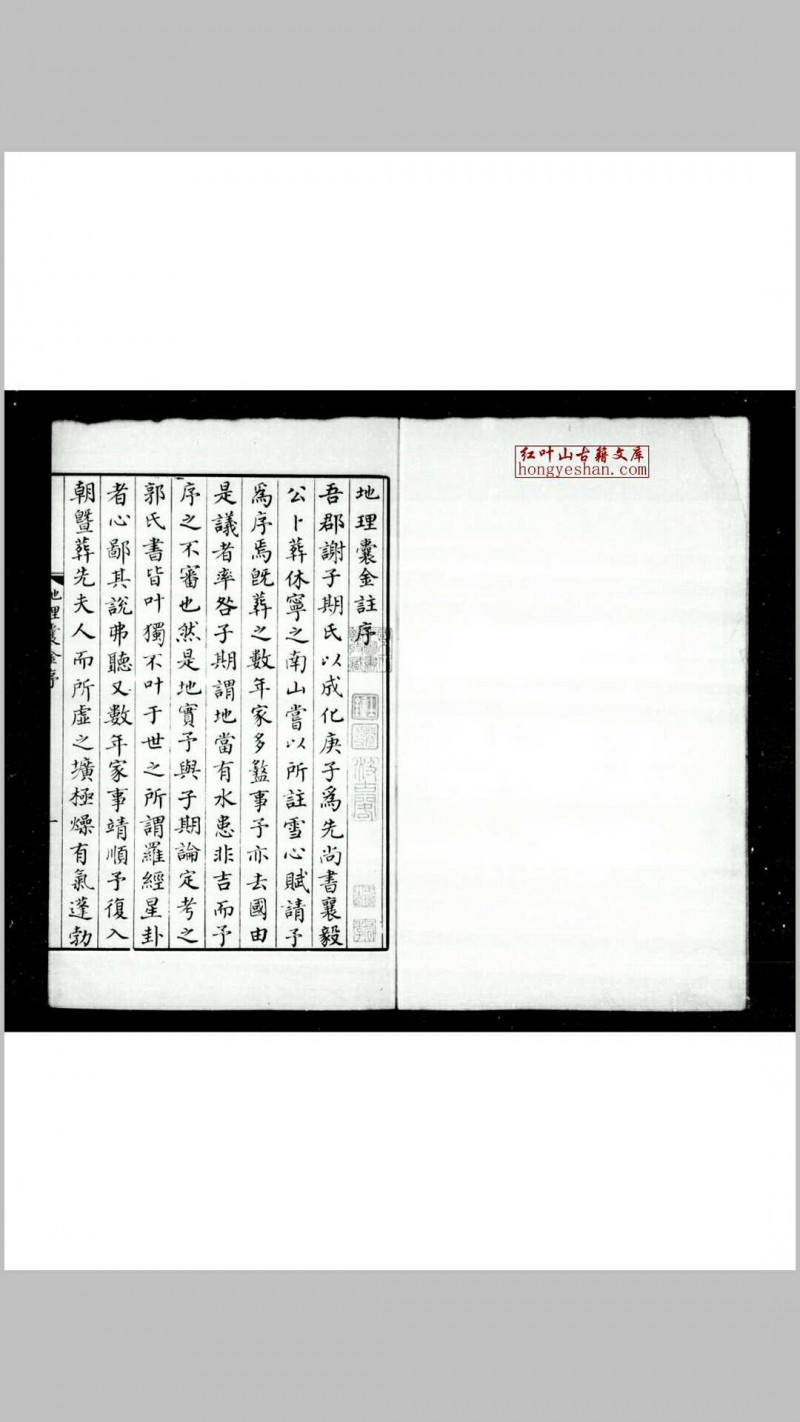 红叶山古籍文库
hongyeshan.com
地理囊金註序
吾郡謝子期氏以成化庚子爲先尚書襄毅
公卜葬休寧之南山嘗以所註雪心賦請予
爲序焉旣葬之數年家多齾事予亦去國由
是議者率咎子期謂地當有水患非吉而予
序之不審也然是地實予與子期論定考之
郭氏書皆叶獨不叶于世之所謂羅經星卦
者心鄙其說弗聽又數年家事靖順予復入
朝曁葬先夫人而所虛之壙極燥有氣蓬勃
地理囊金序
一